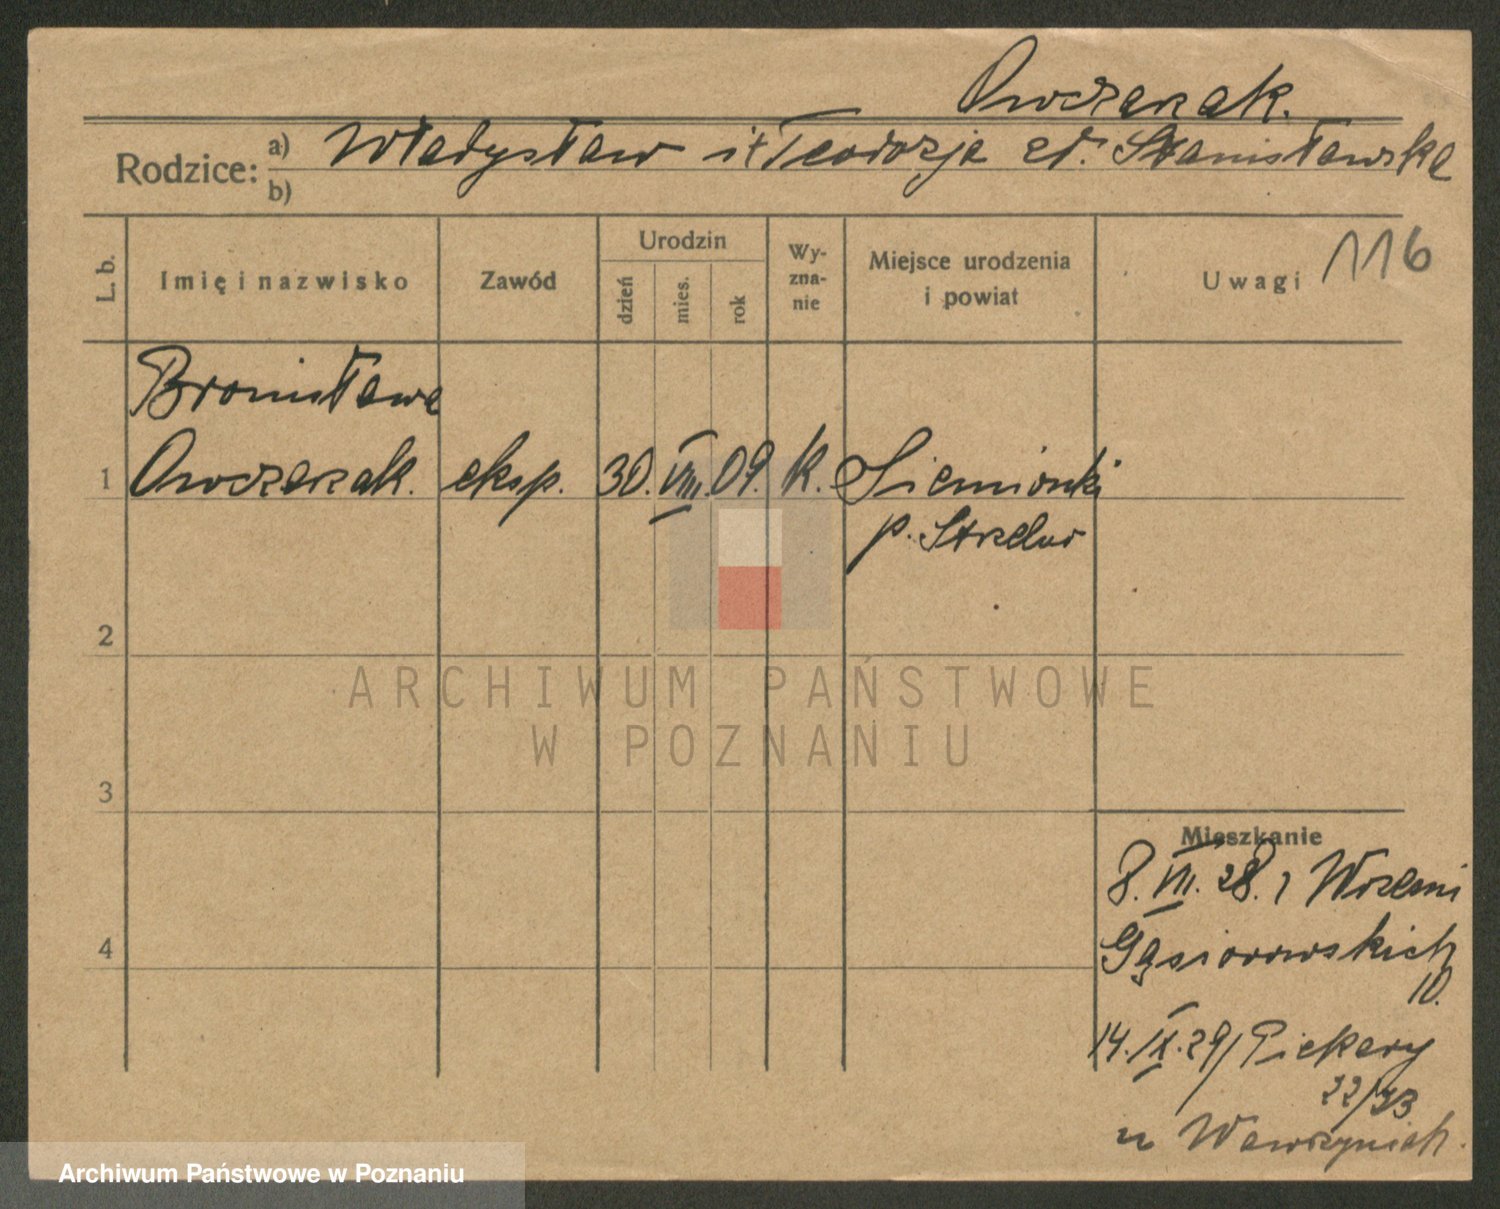 Owczarzak.
Rodzice: a) Władysław i Teodozja zd. Stanisławska
b)
116
L. b. Imię i nazwisko Zawód Urodzin dzień mies. rok Wy-zna-nie Miejsce urodzenia i powiat Uwagi
Bronisława
1 Owczarzak. eksp. 30. VIII. 09. k. Siemionki
p. Strzelno
2
ARCHIWUM PAŃSTWOWE
W POZNANIU
3
Mieszkanie
8. VIII. 28. z Wrześni
4 Gąsiorowskich
10.
14. IX. 29/ Piekary
22/23
u Wawrzyniak.
Archiwum Państwowe w Poznaniu